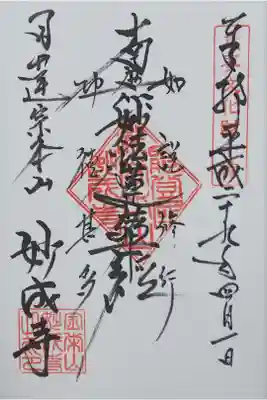 奉拝 平成二十九年四月一日
如説修行
南無妙法蓮華経
功徳甚多
日蓮宗本山
妙成寺